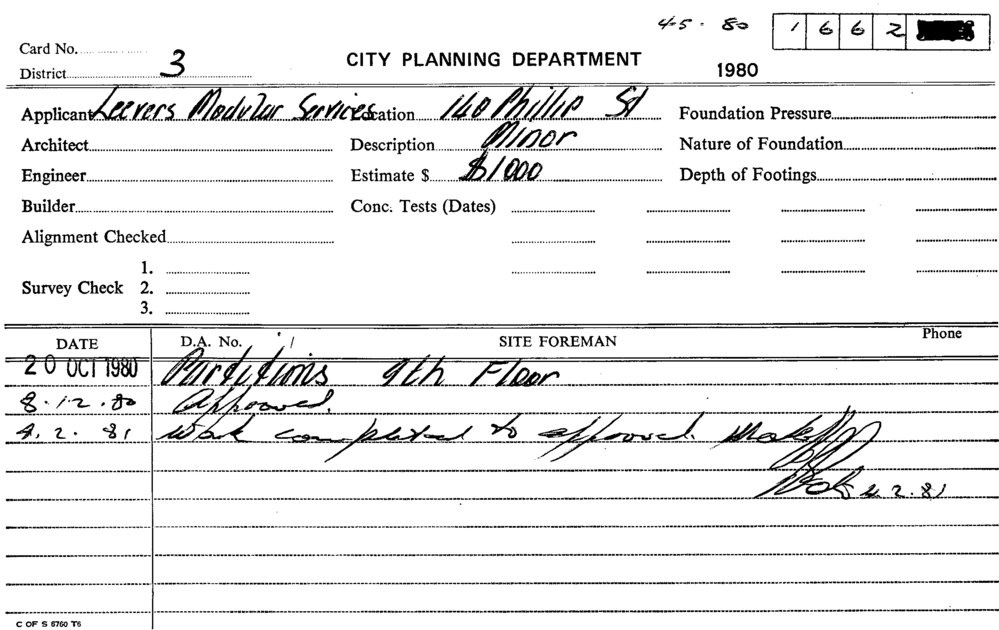 45 · 80 1 6 6 2
Card No.
District 3
CITY PLANNING DEPARTMENT
1980
Applicant Leevers Modular Services Location 140 Phillip St Foundation Pressure
Architect Description Minor Nature of Foundation
Engineer Estimate $ $1000 Depth of Footings
Builder Conc. Tests (Dates)
Alignment Checked
Survey Check 1.
2.
3.
DATE D.A. No. SITE FOREMAN Phone
20 OCT 1980 Partitions 9th Floor
8 · 12 · 80 Approved.
4. 2. 81 Work completed to approval.
4. 2. 81
C OF S 6760 T6